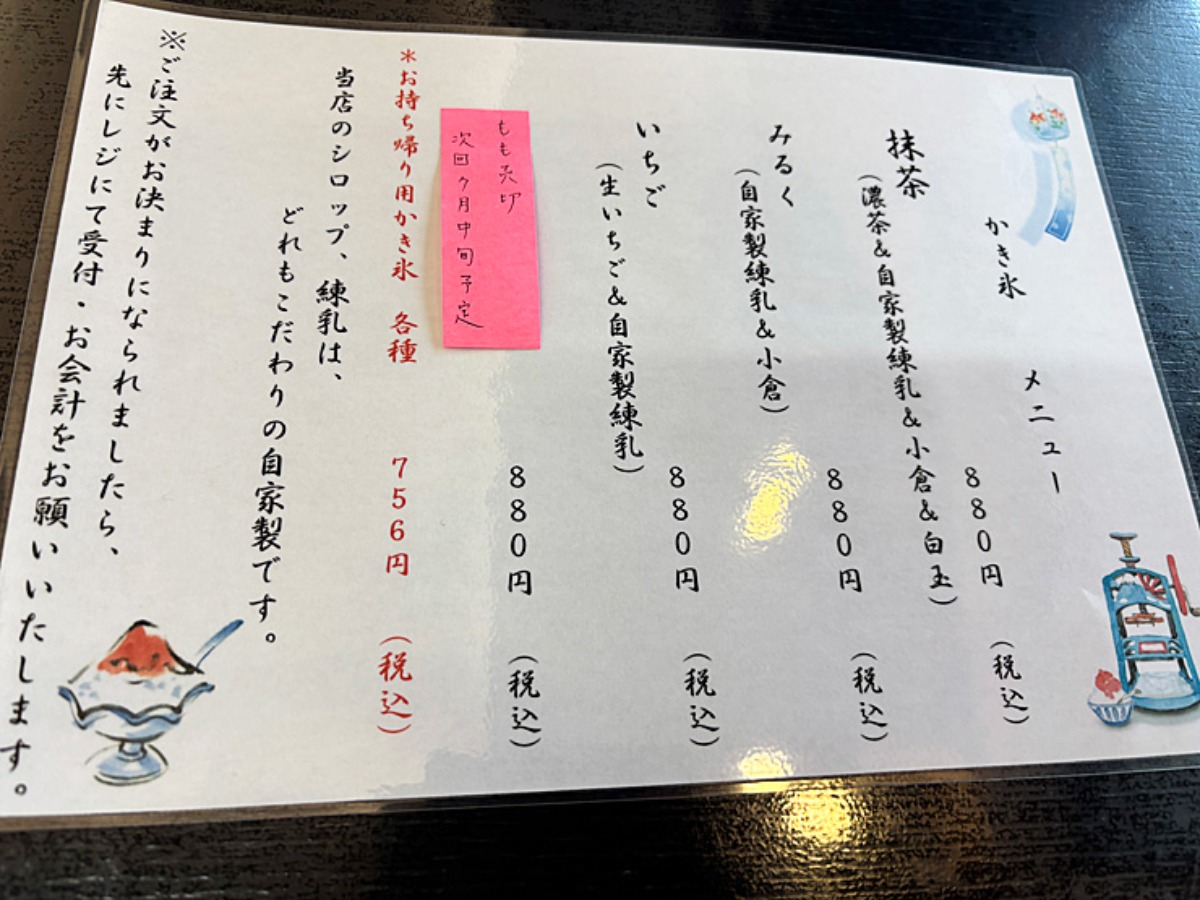 かき氷 メニュー
抹茶 880円（税込）
（濃茶＆自家製練乳＆小倉＆白玉）
みるく 880円（税込）
（自家製練乳＆小倉）
いちご 880円（税込）
（生いちご＆自家製練乳）
もも売切
次回7月中旬予定
880円（税込）
＊お持ち帰り用かき氷 各種 756円（税込）
当店のシロップ、練乳は、
どれもこだわりの自家製です。
※ご注文がお決まりになられましたら、
先にレジにて受付・お会計をお願いいたします。